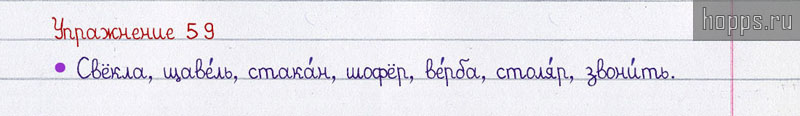 Упражнение 59
hopps.ru
• Свёкла, щаве́ль, стака́н, шофёр, ве́рба, столя́р, звони́ть.